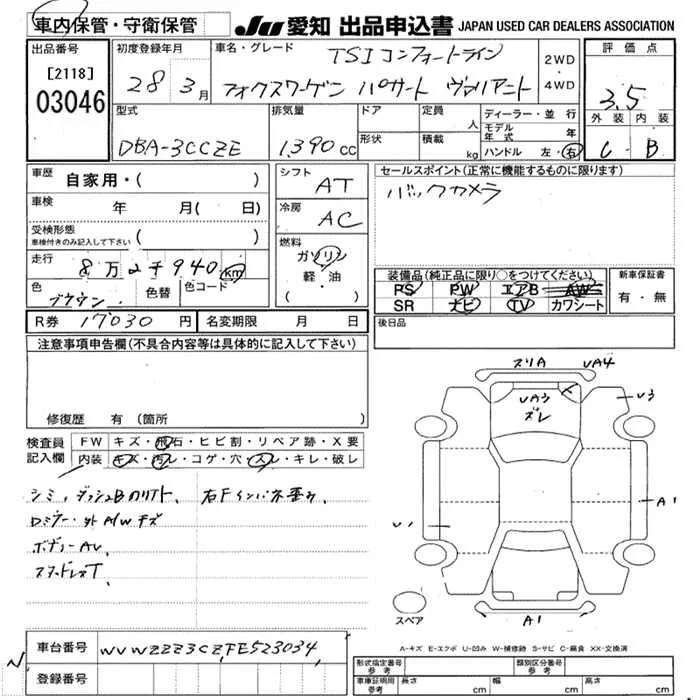 車内保管・守衛保管
JU 愛知 出品申込書 JAPAN USED CAR DEALERS ASSOCIATION
出品番号
[2118]
03046
初度登録年月
28 3月
車名・グレード
TSI コンフォートライン
フォクスワーゲン パサート ヴァリアント
2WD
4WD
評価点
3.5
外装 内装
C B
型式
DBA-3CCZE
排気量
1390cc
ドア
形状
定員 人
積載 kg
ディーラー・並行
モデル年式 年
ハンドル 左・右
車歴 自家用・( )
車検 年 月(日)
受検形態
車検付きのみ記入して下さい ( )
走行 8万2千940km
色 ブラウン 色替 色コード
シフト AT
冷房 AC
燃料
ガソリン
軽・油
( )
セールスポイント(正常に機能するものに限ります)
バックカメラ
装備品(純正品に限り○をつけてください)
PS PW エアB AW
SR ナビ TV カワシート
新車保証書
有・無
R券 17030円 名変期限 月 日
後日品
注意事項申告欄(不具合内容等は具体的に記入して下さい)
修復歴 有(箇所
検査員記入欄
FW キズ・飛石・ヒビ割・リペア跡・X要
内装 キズ・汚レ・コゲ・穴・スレ・キレ・破レ
シミ、ダッシュB
ロミラー・外A/Wキズ
ボデーAU
スタッドレスT
ズリA UA4
UA3
ズレ
U3
A1
U1
A1
スペア
A-キズ E-エクボ U-凹み W-補修跡 S-サビ C-腐食 XX-交換済
車台番号 WVWZZZ3CZFE523034
登録番号
形式指定番号 参考
類別区分番号 参考
車庫証明用 参考 長さ cm 幅 cm 高さ cm